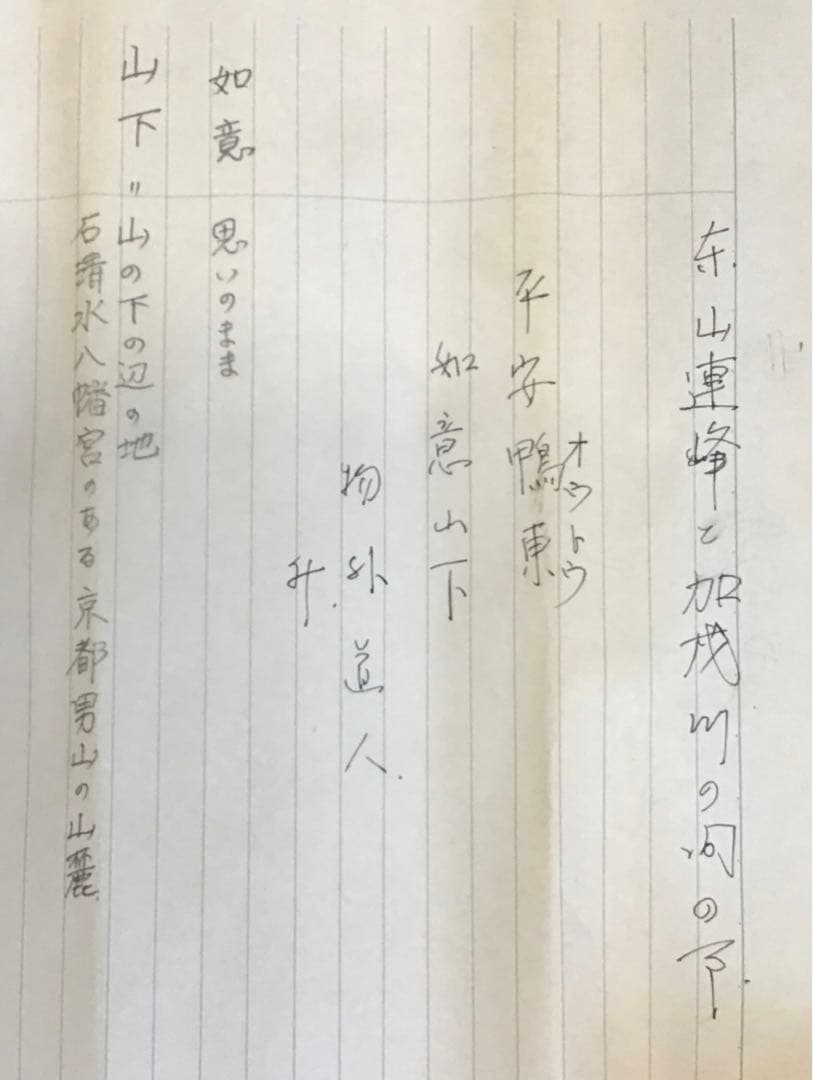 東山連峰と加茂川の間の下
オウトウ
平安鴨東
如意山下
物外道人
升
如意 思いのまま
山下=山の下の辺の地
石清水八幡宮のある京都男山の山麓